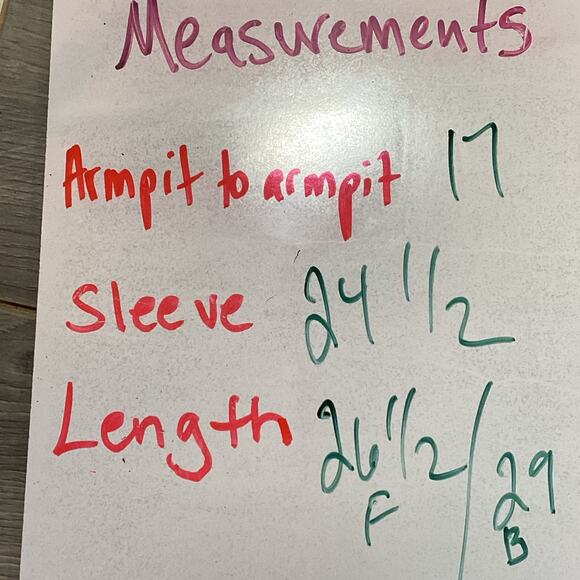 Measurements
Armpit to armpit 17
Sleeve 24 1/2
Length 26 1/2 / 29
F B